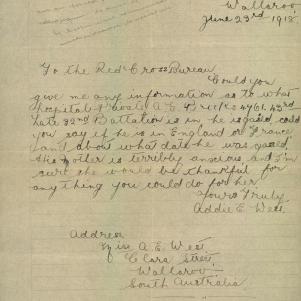 Wallaroo,
June 23rd 1918.
To the Red Cross Bureau
Could you
give me any information as to what
hospital Private A. E. 4761. 43rd
late 32nd Battalion is in, he is gased, could
you say if he is in England or France
and about what date he was gased.
His Mother is terribly anxious and I'm
sure she would be thankful for
anything you could do for her
Yours Truly
Addie E. West.
Address
A. E. West
Clara Street
Wallaroo
South Australia